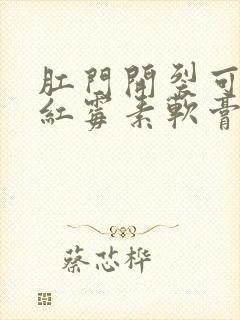 肛門開裂可
紅霉素軟膏
蔡芯桦